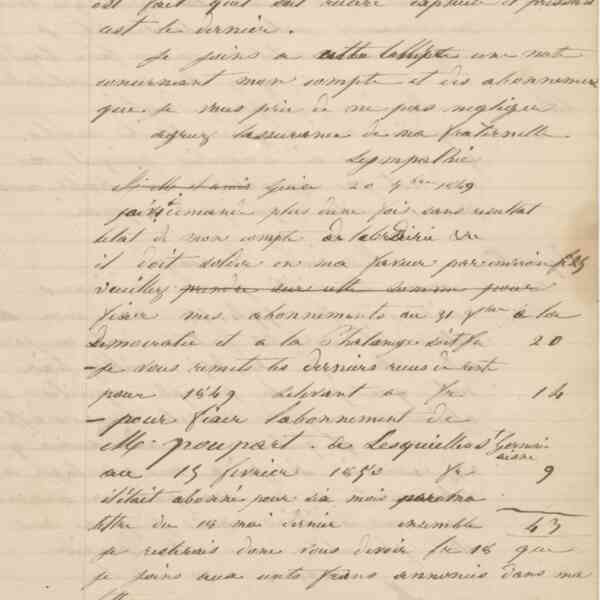 est le dernier.
Je joins à cette lettre une note
concernant mon compte et des abonnements
que je vous prie de ne pas négliger
agréez l'assurance de ma fraternelle
sympathie
Guise 20 9bre 1849
j'ai demandé plus d'une fois sans résultat
l'état de mon compte de librairie &c
il doit solder en ma faveur par environ f 25
veuillez prendre sur cette somme pour
fixer mes abonnements au 31 Xbre à la
Démocratie et à la Phalange soit fr 20
- Je vous remets les derniers reçus de
pour 1849 s'élevant à fr 14
- pour fixer l'abonnement de
Mr poupart à Lesquielles St Germain
aisne
au 15 février 1850 fr 9
il était abonné pour six mois par ma
lettre du 18 mai dernier ensemble 43
je resterais donc vous devoir fr 18 que
je joins aux cents francs annoncés dans ma